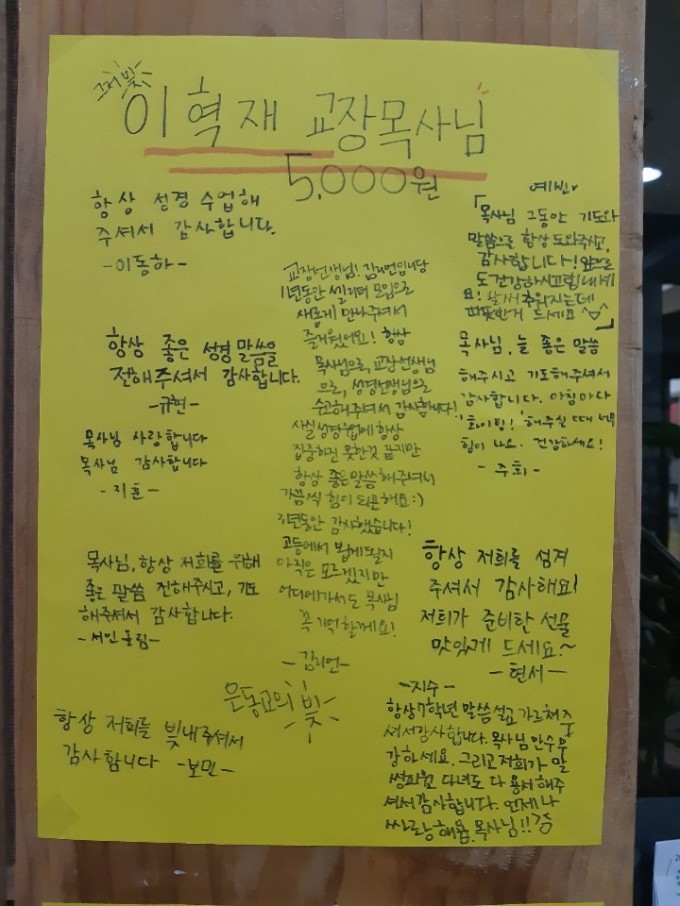 그저 빛
이혁재 교장목사님
5,000원
항상 성경 수업해
주셔서 감사합니다.
-이동하-
항상 좋은 성경 말씀을
전해주셔서 감사합니다.
-규현-
목사님 사랑합니다
목사님 감사합니다
-지훈-
목사님, 항상 저희를 위해
좋은 말씀 전해주시고, 기도
해주셔서 감사합니다.
-서인울림-
항상 저희를 빛내주셔서
감사합니다 -보민-
교장선생님! 김리언입니당
1년동안 셀리더 모임으로
새롭게 만나주셔서
즐거웠어요! 항상
목사님으로, 교장선생님
으로, 성경선생님으로
수고해주셔서 감사합니다!
사실 성경수업에 항상
집중하진 못한것 같지만
항상 좋은말씀 해주셔서
가끔씩 힘이 되곤해요:)
1년동안 감사했습니다!
고등에서 뵙게될지
아직은 모르겠지만
어디에가서도 목사님
꼭 기억할게요!
-김리언-
은동교의 빛
예빈
「목사님 그동안 기도와
말씀으로 항상 도와주시고,
감사합니다! 앞으로
도 건강하시고 힘내세
요! 날씨 추워지는데
따뜻한거 드세요^^」
목사님, 늘 좋은 말씀
해주시고 기도해주셔서
감사합니다. 아침마다
'화이팅!' 해주실 때 너무
힘이 나요. 건강하세요!
-주희-
항상 저희를 섬겨
주셔서 감사해요!
저희가 준비한 선물
맛있게 드세요~
-현서-
-지수-
항상 7학년 말씀 설교 가르쳐주
셔서감사합니다. 목사님 만수무
강하세요. 그리고 저희가 말
썽피원 다녀도 다 용서해주
셔서감사합니다. 언제나
사랑해용, 목사님!!